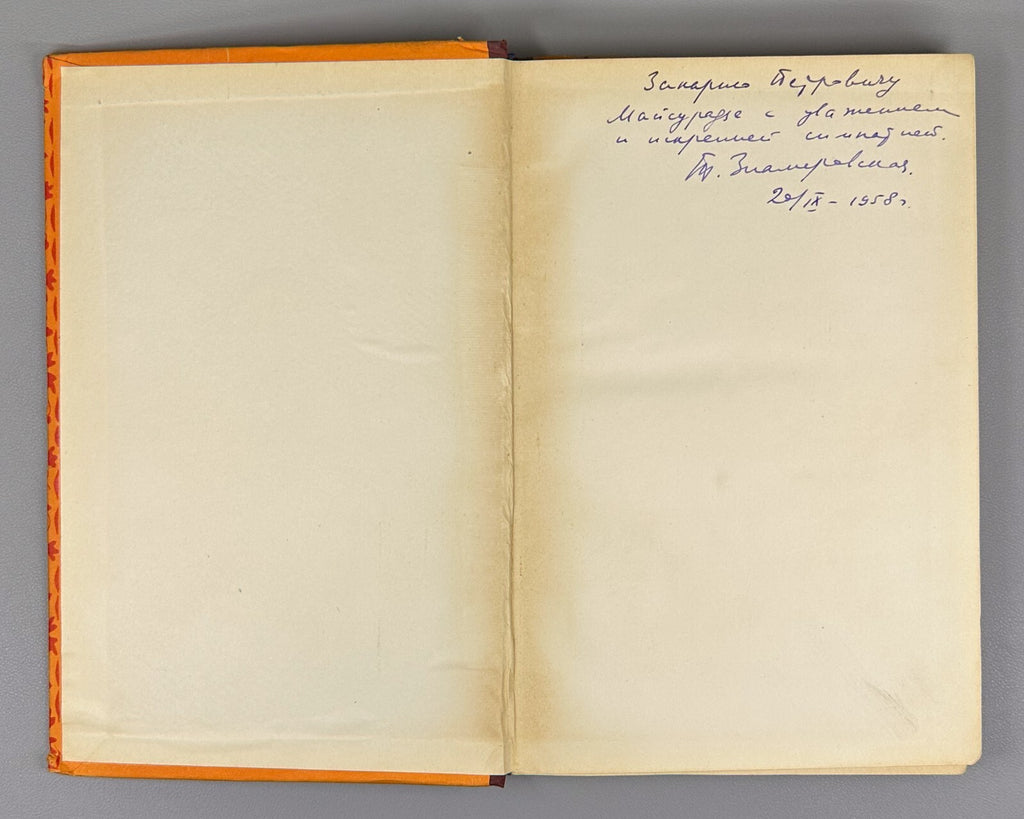 Захарию Петровичу
Майсурадзе с уважением
и искренней симпатией.
Т. Знамеровская.
20/IX – 1958 г.